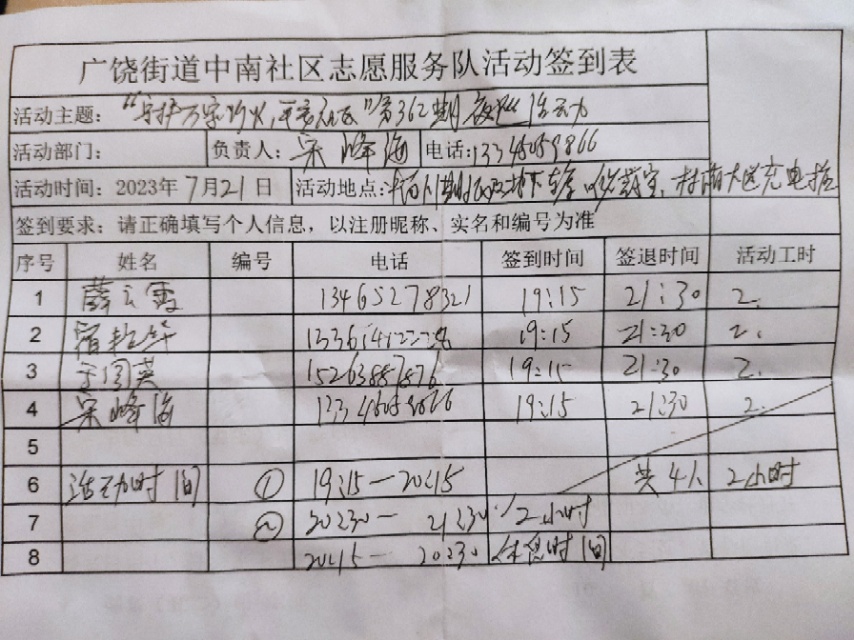 广饶街道中南社区志愿服务队活动签到表
活动主题：“守护万家灯火，平安社区”第362期夜巡活动
活动部门： 负责人：宋峰海 电话：13345059866
活动时间：2023年7月21日 活动地点：
签到要求：请正确填写个人信息，以注册昵称、实名和编号为准
序号 姓名 编号 电话 签到时间 签退时间 活动工时
1 薛云霞 13465278321 19:15 21:30 2.
2 19:15 21:30 2.
3 15263887876 19:15 21:30 2.
4 宋峰海 19:15 21:30 2.
5
6 活动时间 ① 19:15—20:15 共4人 2小时
7 ② 20:30— 21:30 2小时
8 20:15— 20:30 休息时间